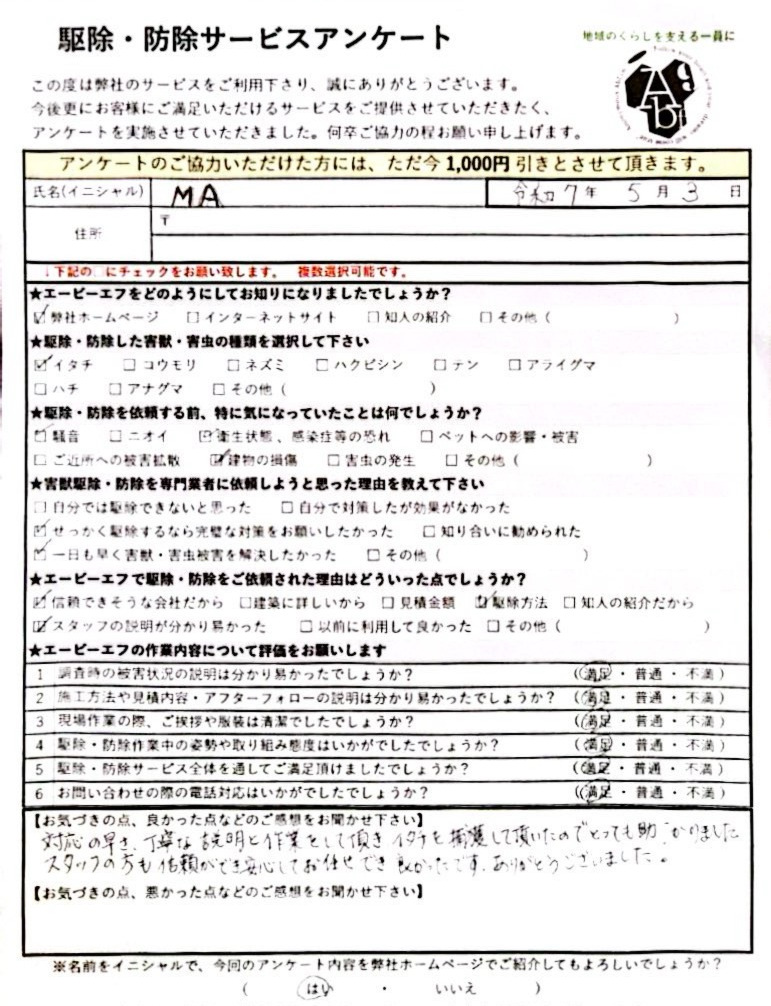 駆除・防除サービスアンケート
地域のくらしを支える一員に
この度は弊社のサービスをご利用下さり、誠にありがとうございます。
今後更にお客様にご満足いただけるサービスをご提供させていただきたく、
アンケートを実施させていただきました。何卒ご協力の程お願い申し上げます。
アンケートのご協力いただけた方には、ただ今1,000円引きとさせて頂きます。
氏名(イニシャル) MA 令和7年 5月3日
住所 〒
↓下記の□にチェックをお願い致します。 複数選択可能です。
★エービーエフをどのようにしてお知りになりましたでしょうか?
☑弊社ホームページ □インターネットサイト □知人の紹介 □その他( )
★駆除・防除した害獣・害虫の種類を選択して下さい
☑イタチ □コウモリ □ネズミ □ハクビシン □テン □アライグマ
□ハチ □アナグマ □その他( )
★駆除・防除を依頼する前、特に気になっていたことは何でしょうか?
☑騒音 □ニオイ ☑衛生状態、感染症等の恐れ □ペットへの影響・被害
□ご近所への被害拡散 ☑建物の損傷 □害虫の発生 □その他( )
★害獣駆除・防除を専門業者に依頼しようと思った理由を教えて下さい
□自分では駆除できないと思った □自分で対策したが効果がなかった
☑せっかく駆除するなら完璧な対策をお願いしたかった □知り合いに勧められた
☑一日も早く害獣・害虫被害を解決したかった □その他( )
★エービーエフで駆除・防除をご依頼された理由はどういった点でしょうか?
☑信頼できそうな会社だから □建築に詳しいから □見積金額 ☑駆除方法 □知人の紹介だから
☑スタッフの説明が分かり易かった □以前に利用して良かった □その他( )
★エービーエフの作業内容について評価をお願いします
1 調査時の被害状況の説明は分かり易かったでしょうか? (満足・普通・不満)
2 施工方法や見積内容・アフターフォローの説明は分かり易かったでしょうか? (満足・普通・不満)
3 現場作業の際、ご挨拶や服装は清潔でしたでしょうか? (満足・普通・不満)
4 駆除・防除作業中の姿勢や取り組み態度はいかがでしたでしょうか? (満足・普通・不満)
5 駆除・防除サービス全体を通してご満足頂けましたでしょうか? (満足・普通・不満)
6 お問い合わせの際の電話対応はいかがでしたでしょうか? (満足・普通・不満)
【お気づきの点、良かった点などのご感想をお聞かせ下さい】
対応の早さ、丁寧な説明と作業をして頂きイタチを捕獲して頂いたのでとっても助かりました
スタッフの方も信頼ができ安心してお任せでき良かったです。ありがとうございました。
【お気づきの点、悪かった点などのご感想をお聞かせ下さい】
※名前をイニシャルで、今回のアンケート内容を弊社ホームページでご紹介してもよろしいでしょうか?
( はい ・ いいえ )